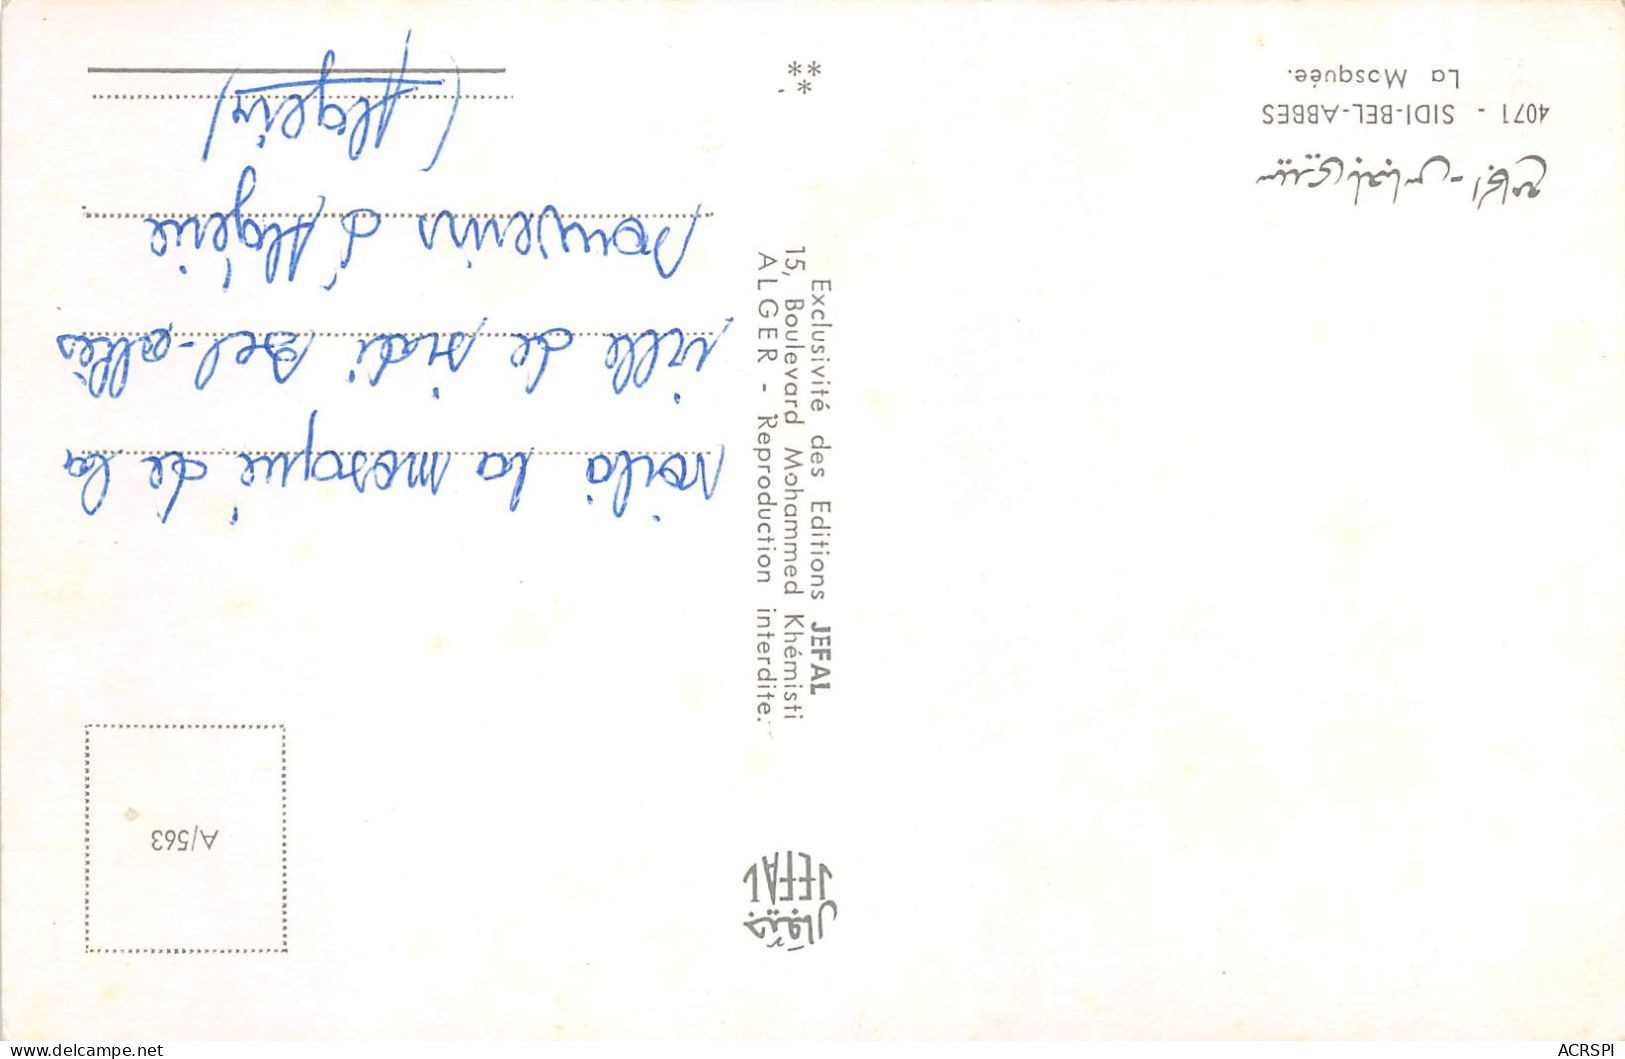 4071 - SIDI-BEL-ABBES
La Mosquée.
Exclusivité des Editions JEFAL
15, Boulevard Mohammed Khémisti
ALGER - Reproduction interdite.
جيفال
JEFAL
A/563
voilà la mosqué de la
ville de sidi Bel-abbès
souvenirs d'Algérie
(Algeir)
ACRSPI